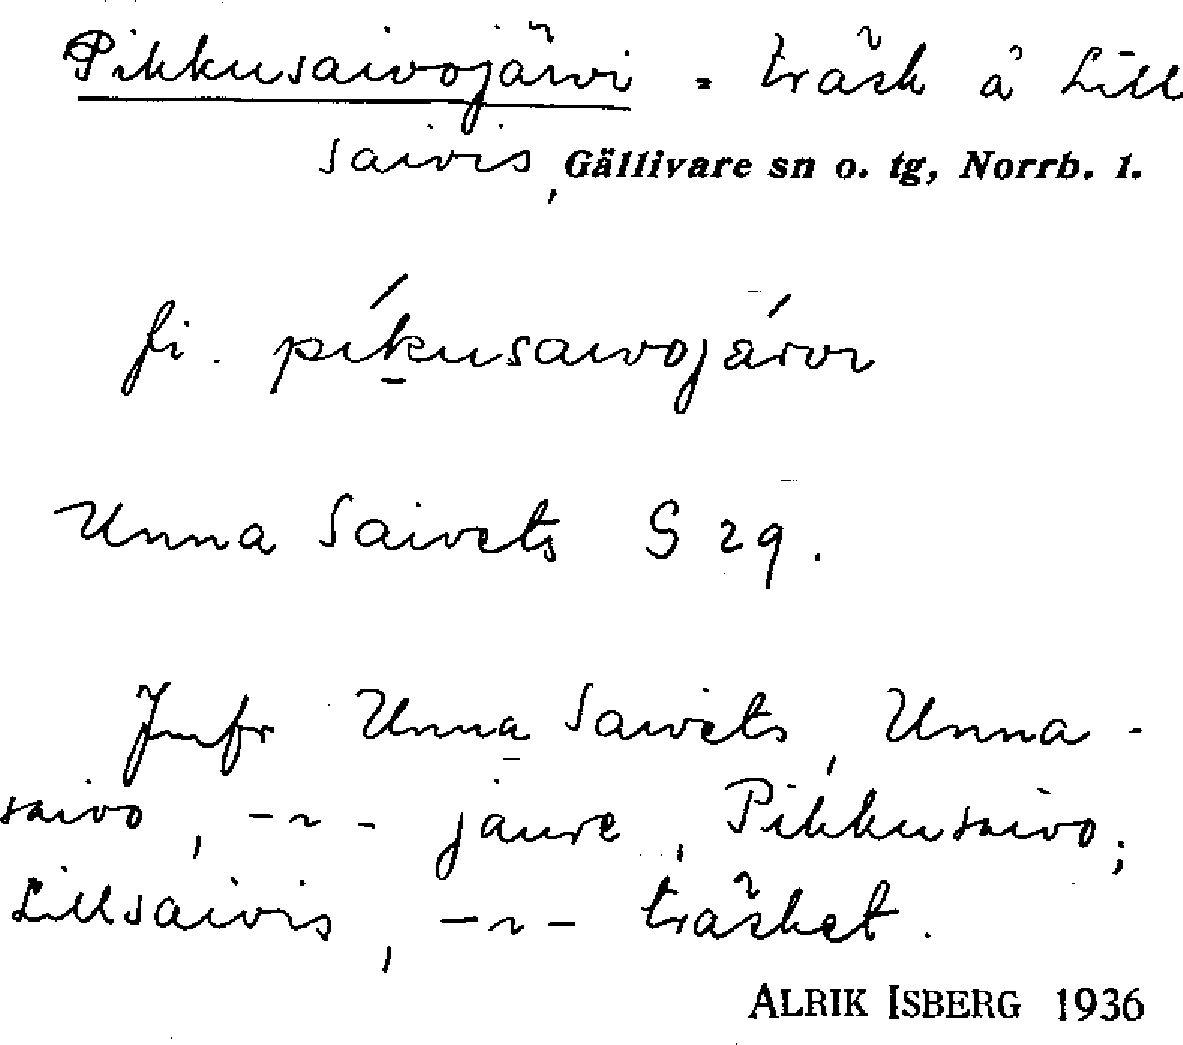 Pikkusaivojärvi = träsk å Lill
saivis, Gällivare sn o. tg, Norrb. l.
fi. píkusaivojárvi
Unna Saivets G 29.
Jmfr Unna Saivets, Unna-
saivo, -~- jaure, Pikkusaivo;
Lillsaivis, -~- träsket.
ALRIK ISBERG 1936